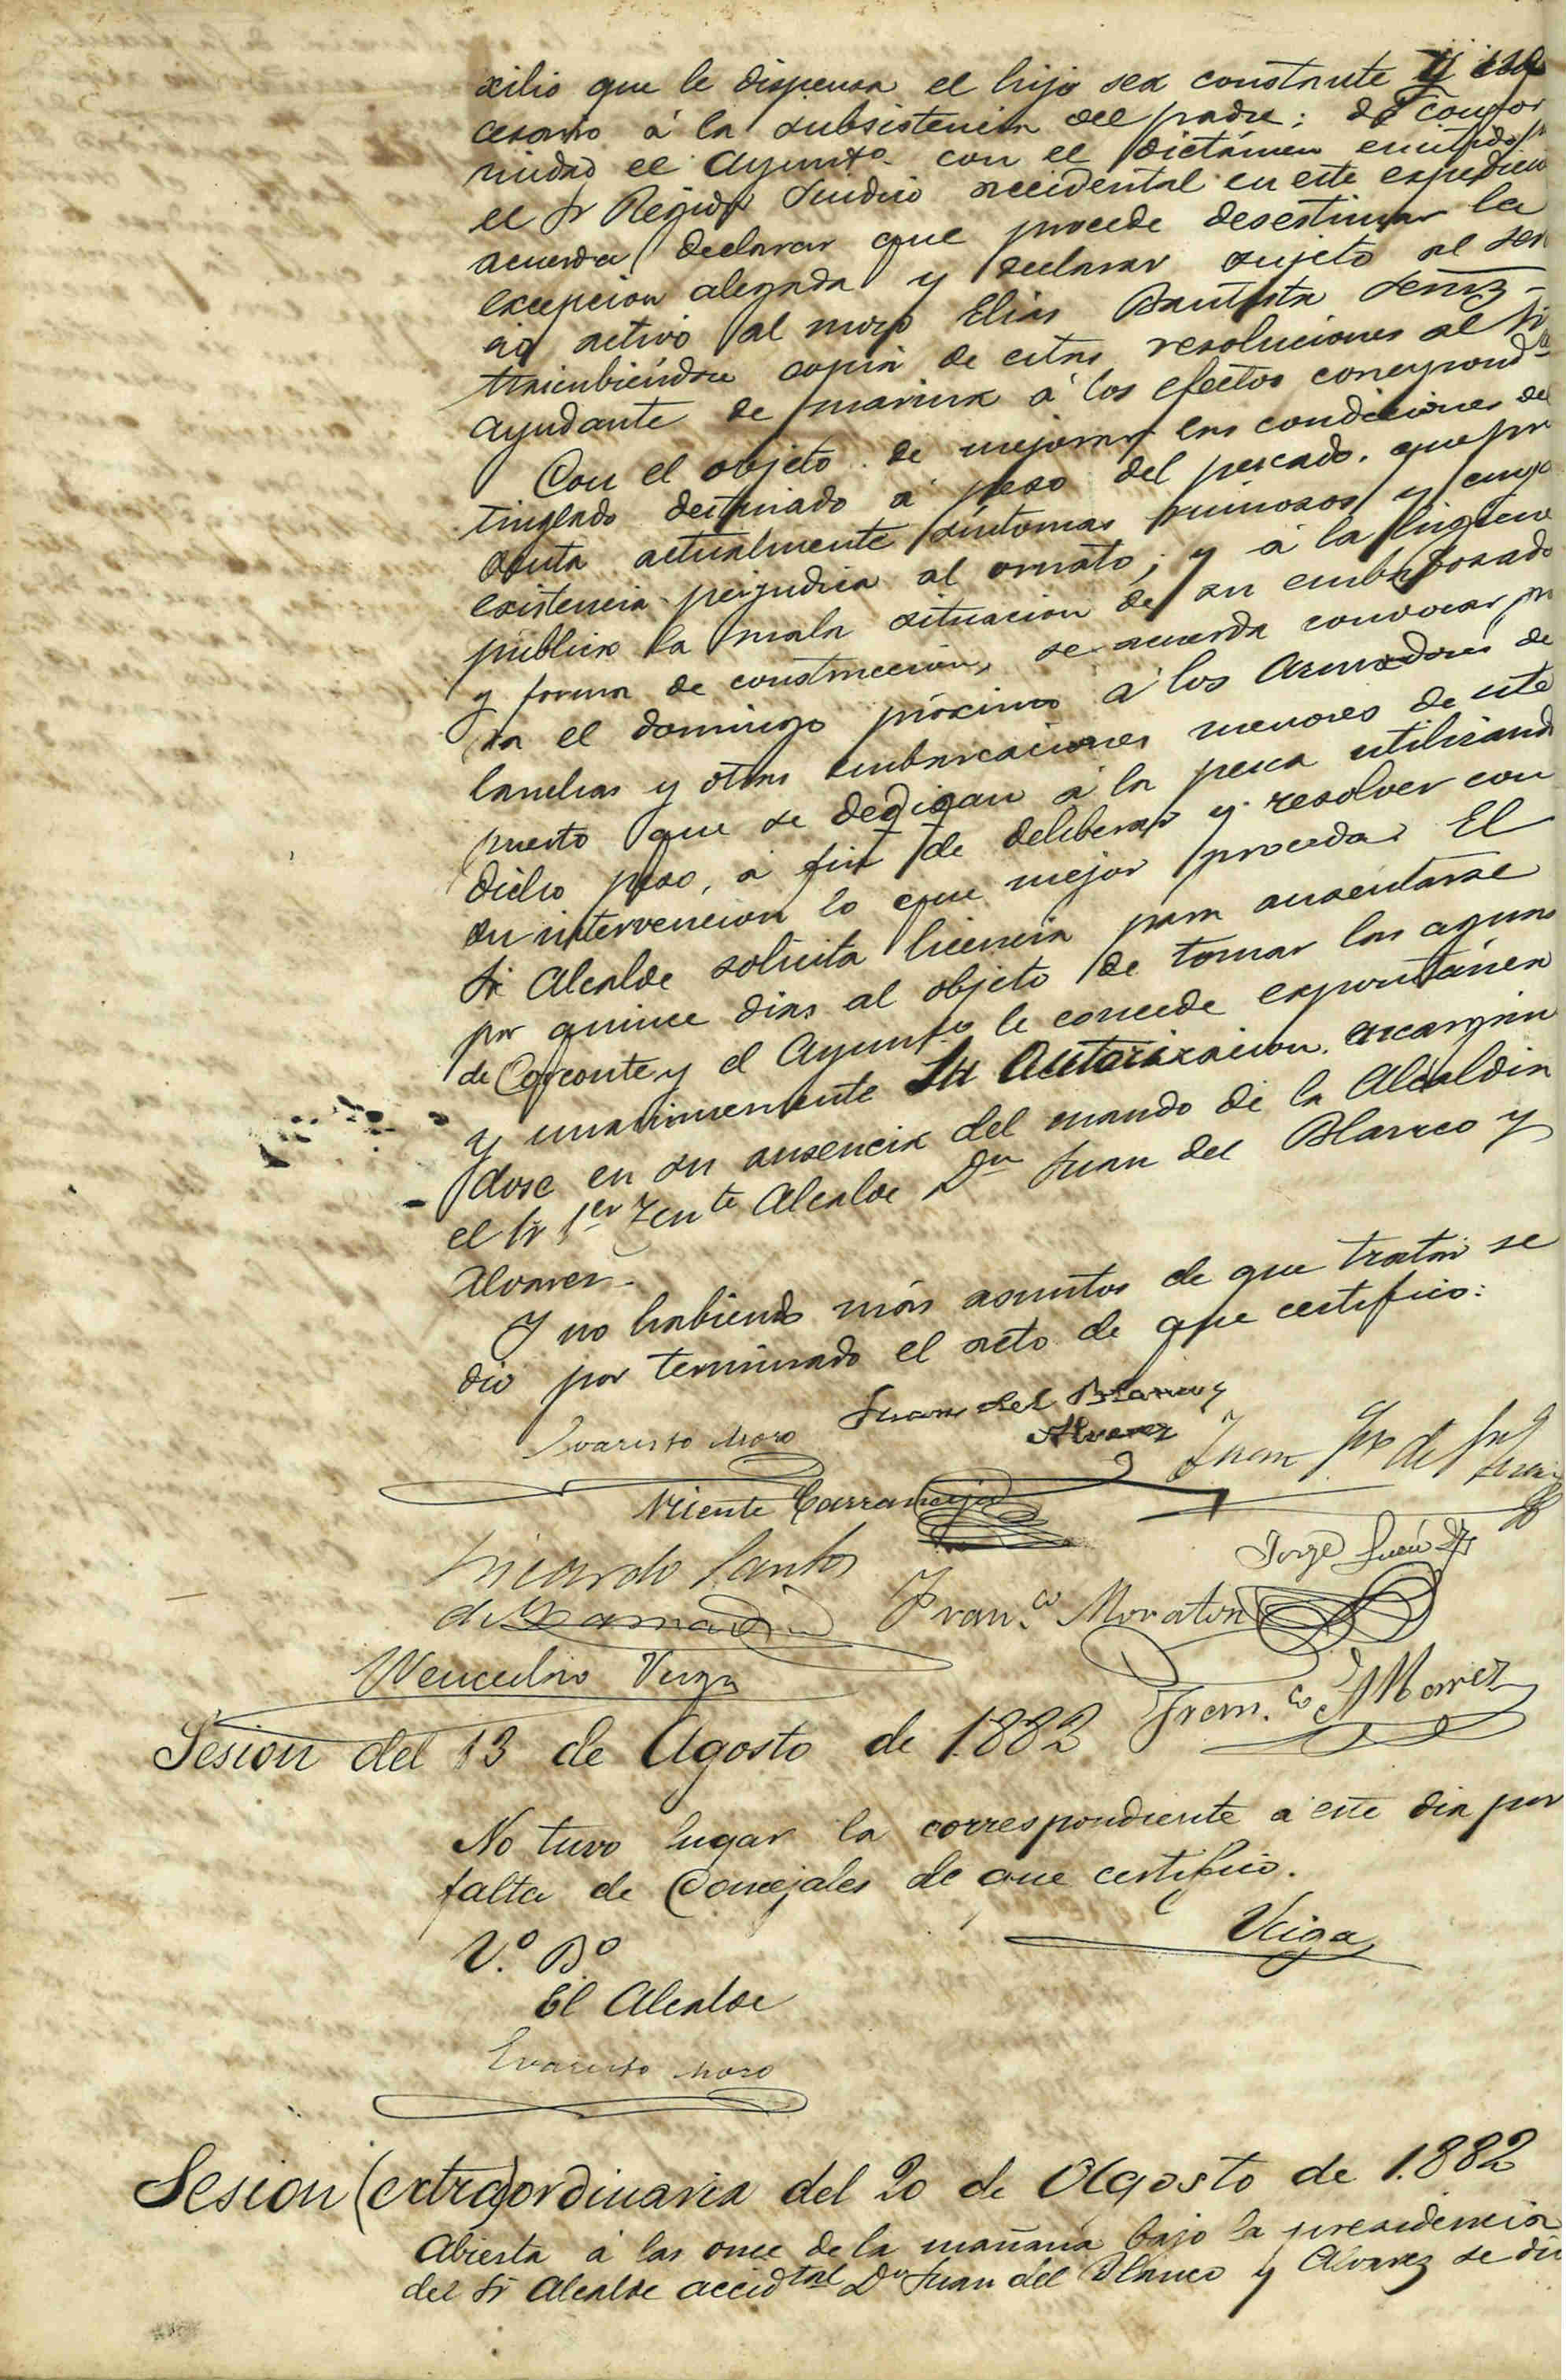 xilio que le dispensa el hijo sea constante y
cesario á la subsistencia del padre: de confor
midad el Ayuntº con el dictámen emitido pr
el Sr Regidor Sindico accidental en este expedien
acuerda declarar que procede desestimar la
excepcion alegada y declarar sujeto al ser
cio activo al mozo Elias Bautista Seniz-
trascribiéndose copia de estas resoluciones al Sr
Ayudante de marina á los efectos correspondtes
Con el objeto de mejorar las condiciones del
tinglado destinado á peso del pescado, que pre
senta actualmente síntomas ruinosos y cuya
existencia perjudica al ornato; y á la higiene
pública la mala situacion de su embaldosado
y forma de construccion, se acuerda convocar pa
ra el domingo próximo á los Armadores de
lanchas y otras embarcaciones menores de este
puerto que se dedican á la pesca utilizando
dicho peso, á fin de deliberar y resolver con
su intervencion lo que mejor proceda. El
Sr Alcalde solicita licencia para ausentarse
por quince dias al objeto de tomar las aguas
de Corconte y el Ayuntº le concede expontánea
y unanimemente su autorizacion, encargán
dose en su ausencia del mando de la Alcaldia
el Sr 1er Tente Alcalde Dn Juan del Blanco y
Alvarez-
Y no habiendo más asuntos de que tratar se
dió por terminado el acto de que certifico:
Evaristo Moro Juan del Blanco y
Alvarez
Juan de
Vicente Carranceja
Ricardo Santos
de
Jorge
Franco Moraton
Wenceslao Veiga
Franco Alvarez
Sesion del 13 de Agosto de 1.882
No tuvo lugar la correspondiente á este dia por
falta de Concejales de que certifico.
Veiga
V.º B.º
El Alcalde
Evaristo Moro
Sesion (extra)ordinaria del 20 de Agosto de 1.882
Abierta á las once de la mañana bajo la presidencia
del Sr Alcalde accidtal Dn Juan del Blanco y Alvarez se dió